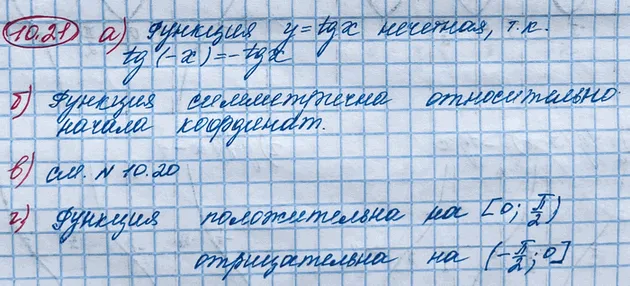 10.21 а) Функция y=tgx нечетная, т.к.
tg(-x)=-tgx
б) Функция симметрична относительно
начала координат.
в) см. №10.20
г) Функция положительна на [0; π/2)
отрицательна на (-π/2; 0]